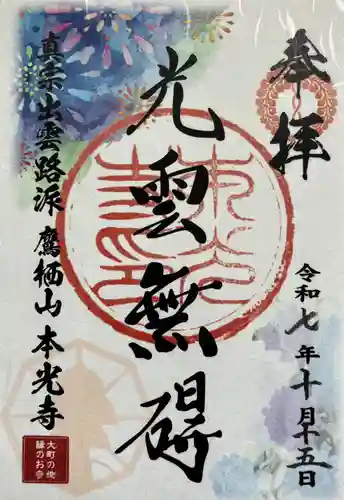 奉拝
光雲無碍
令和七年十月十五日
真宗出雲路派 鷹栖山 本光寺
大町の
縁のお寺